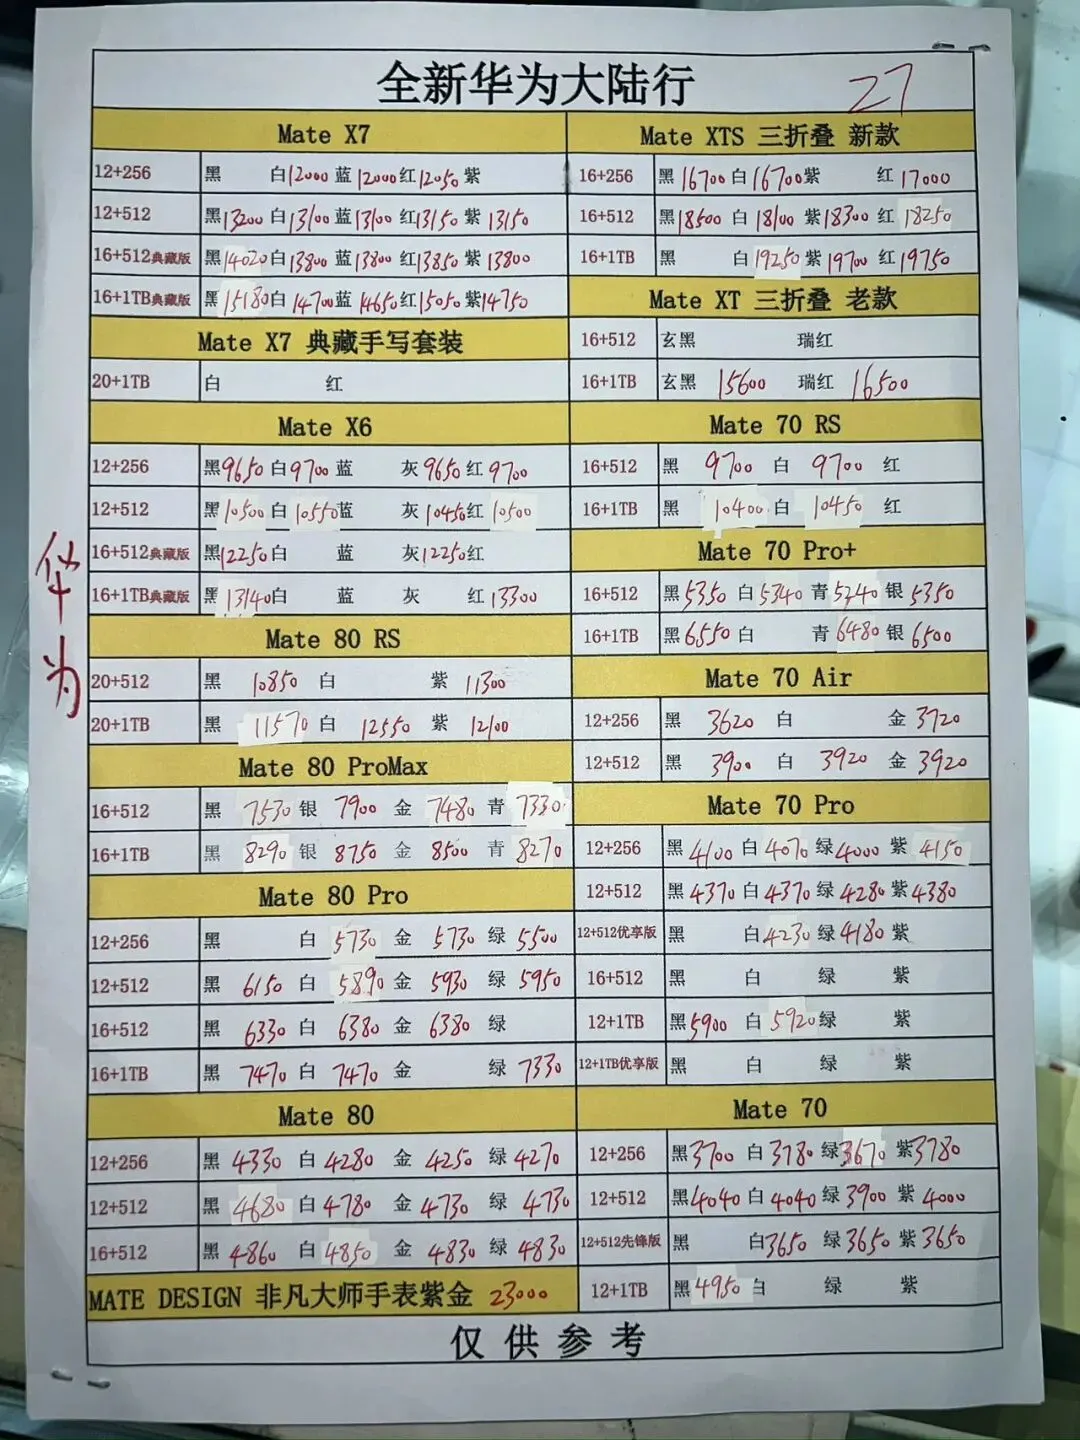 全新华为大陆行 27
华为
Mate X7
12+256 黑 白12000 蓝12000 红12050 紫
12+512 黑13200 白13100 蓝13100 红13150 紫13150
16+512典藏版 黑14020 白13800 蓝13800 红13850 紫13800
16+1TB典藏版 黑15180 白14700 蓝14650 红15050 紫14750
Mate X7 典藏手写套装
20+1TB 白 红
Mate X6
12+256 黑9650 白9700 蓝 灰9650 红9700
12+512 黑10500 白10550 蓝 灰10450 红10500
16+512典藏版 黑12250 白 蓝 灰12250 红
16+1TB典藏版 黑13140 白 蓝 灰 红13300
Mate 80 RS
20+512 黑 10850 白 紫 11300
20+1TB 黑 11570 白 12550 紫 12100
Mate 80 ProMax
16+512 黑 7530 银 7900 金 7480 青 7330
16+1TB 黑 8290 银 8750 金 8500 青 8270
Mate 80 Pro
12+256 黑 白 5730 金 5730 绿 5500
12+512 黑 6150 白 5890 金 5930 绿 5950
16+512 黑 6330 白 6380 金 6380 绿
16+1TB 黑 7470 白 7470 金 绿 7330
Mate 80
12+256 黑 4330 白 4280 金 4250 绿 4270
12+512 黑 4680 白 4780 金 4730 绿 4730
16+512 黑 4860 白 4850 金 4830 绿 4830
MATE DESIGN 非凡大师手表紫金 23000
Mate XTS 三折叠 新款
16+256 黑16700 白16700 紫 红17000
16+512 黑18500 白18100 紫18300 红18250
16+1TB 黑 白19250 紫19700 红19750
Mate XT 三折叠 老款
16+512 玄黑 瑞红
16+1TB 玄黑 15600 瑞红 16500
Mate 70 RS
16+512 黑 9700 白 9700 红
16+1TB 黑 10400 白 10450 红
Mate 70 Pro+
16+512 黑5350 白5340 青5240 银5350
16+1TB 黑6550 白 青6480 银6500
Mate 70 Air
12+256 黑 3620 白 金 3720
12+512 黑 3900 白 3920 金 3920
Mate 70 Pro
12+256 黑4100 白4070 绿4000 紫4150
12+512 黑4370 白4370 绿4280 紫4380
12+512优享版 黑 白4230 绿4180 紫
16+512 黑 白 绿 紫
12+1TB 黑5900 白5920 绿 紫
12+1TB优享版 黑 白 绿 紫
Mate 70
12+256 黑3700 白3780 绿3670 紫3780
12+512 黑4040 白4040 绿3900 紫4000
12+512先锋版 黑 白3650 绿3650 紫3650
12+1TB 黑4950 白 绿 紫
仅供参考